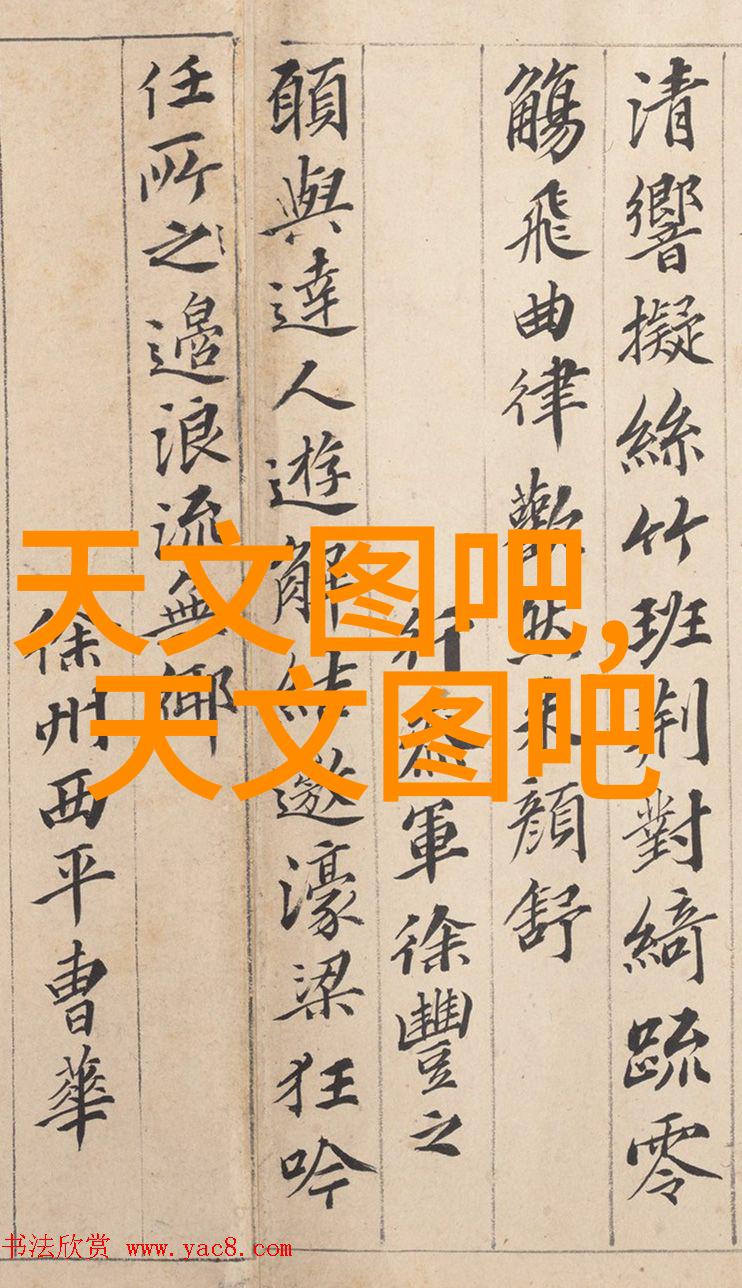 清響擬絲竹班荆對綺疏零
觴飛曲律歡然朱顏舒
行參軍徐豐之
願與達人遊解結遨濠梁狂吟
任所之邁浪流無鄉
徐州西平曹華
天文图吧,
天文图吧
书法欣赏 www.yac8.com